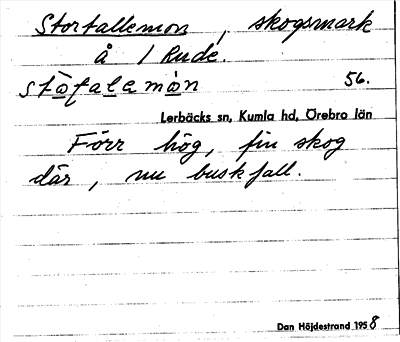 Stortallemon, skogsmark
å 1 Rude.
stò̱fa̱le̱mò̱n 56.
Lerbäcks sn, Kumla hd, Örebro län
Förr hög, fin skog
där, nu buskfall.
Dan Höjdestrand 1958